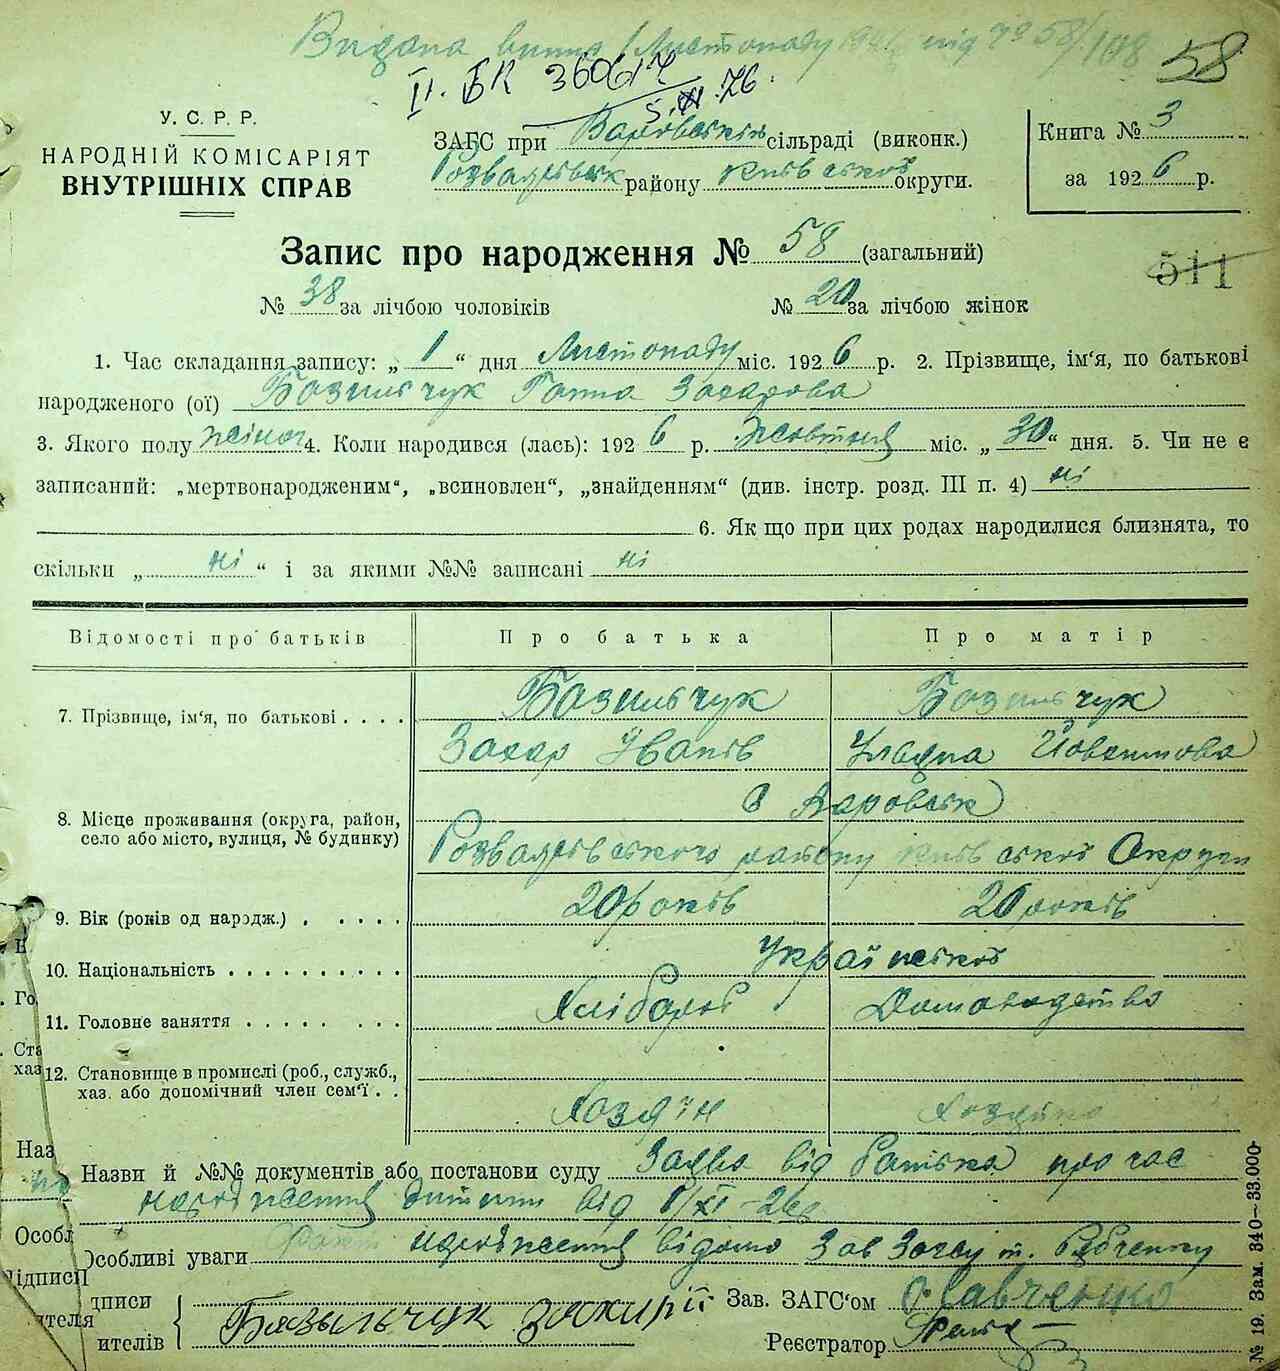 Видана випис 1 Листопаду 192 під № 58/108
58
II. БК 360617
5. XI. 76.
У. С. Р. Р.
НАРОДНІЙ КОМІСАРІЯТ
ВНУТРІШНІХ СПРАВ
ЗАГС при Варовській сільраді (виконк.)
Розважівськ району Київської округи.
Книга № 3
за 1926 р.
Запис про народження № 58 (загальний)
511
№ 38 за лічбою чоловіків № 20 за лічбою жінок
1. Час складання запису: „ 1 “ дня Листопаду міс. 1926 р. 2. Прізвище, ім'я, по батькові
народженого (ої) Базильчук Ганна Захарова
3. Якого полу жіноч 4. Коли народився (лась): 1926 р. Жовтня міс. „ 30 “ дня. 5. Чи не є
записаний: „мертвонародженим“, „всиновлен“, „знайденням“ (див. інстр. розд. III п. 4) ні
6. Як що при цих родах народилися близнята, то
скільки „ ні “ і за якими №№ записані ні
Відомості про батьків Про батька Про матір
7. Прізвище, ім‘я, по батькові . . . . Базильчук Базильчук
Захар Іванів Уляна Йовхимова
8. Місце проживання (округа, район, с Варовськ
село або місто, вулиця, № будинку) Розважівського району Київської Округи
9. Вік (років од народж.) . . . . . 20 років 20 років
10. Національність . . . . . . . . . . Української
11. Головне заняття . . . . . . . . . Хлібороб Домоводство
12. Становище в промислі (роб., служб.,
хаз. або допомічний член сем‘ї . . Хозяїн Хозяйка
Назви й №№ документів або постанови суду Заява від батька про час
народження дитини від 1/XI-26р
Особливі уваги Факт народження відомо Зав Загсу т.
дписи
ителів
Базыльчук Захирій
Зав. ЗАГС‘ом О. Савченко
Реєстратор
№ 19. Зам. 340—33.000
Наз
Особл
ідписи